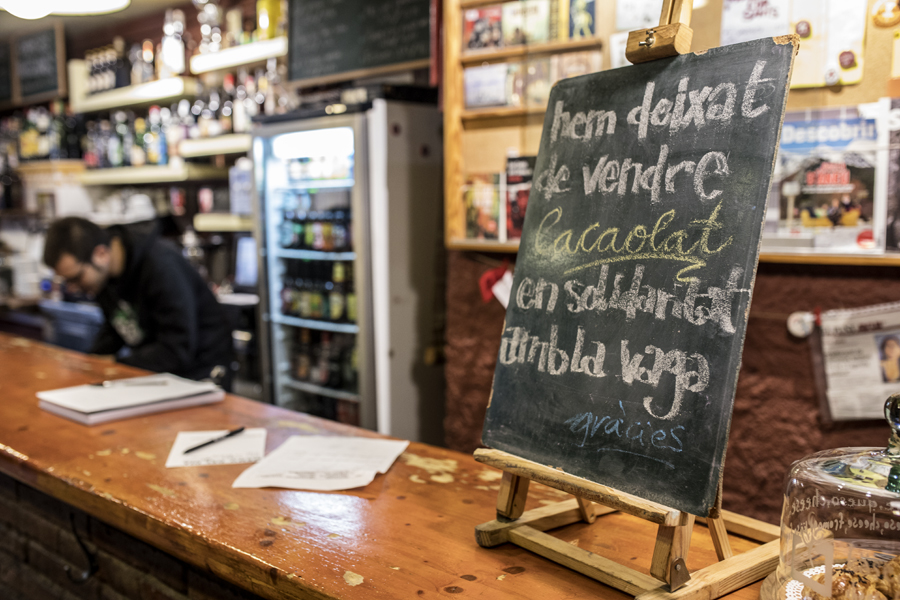 hem deixat
de vendre
Cacaolat
en solidaritat
amb la vaga
gràcies
Descobrir
queso, cheese